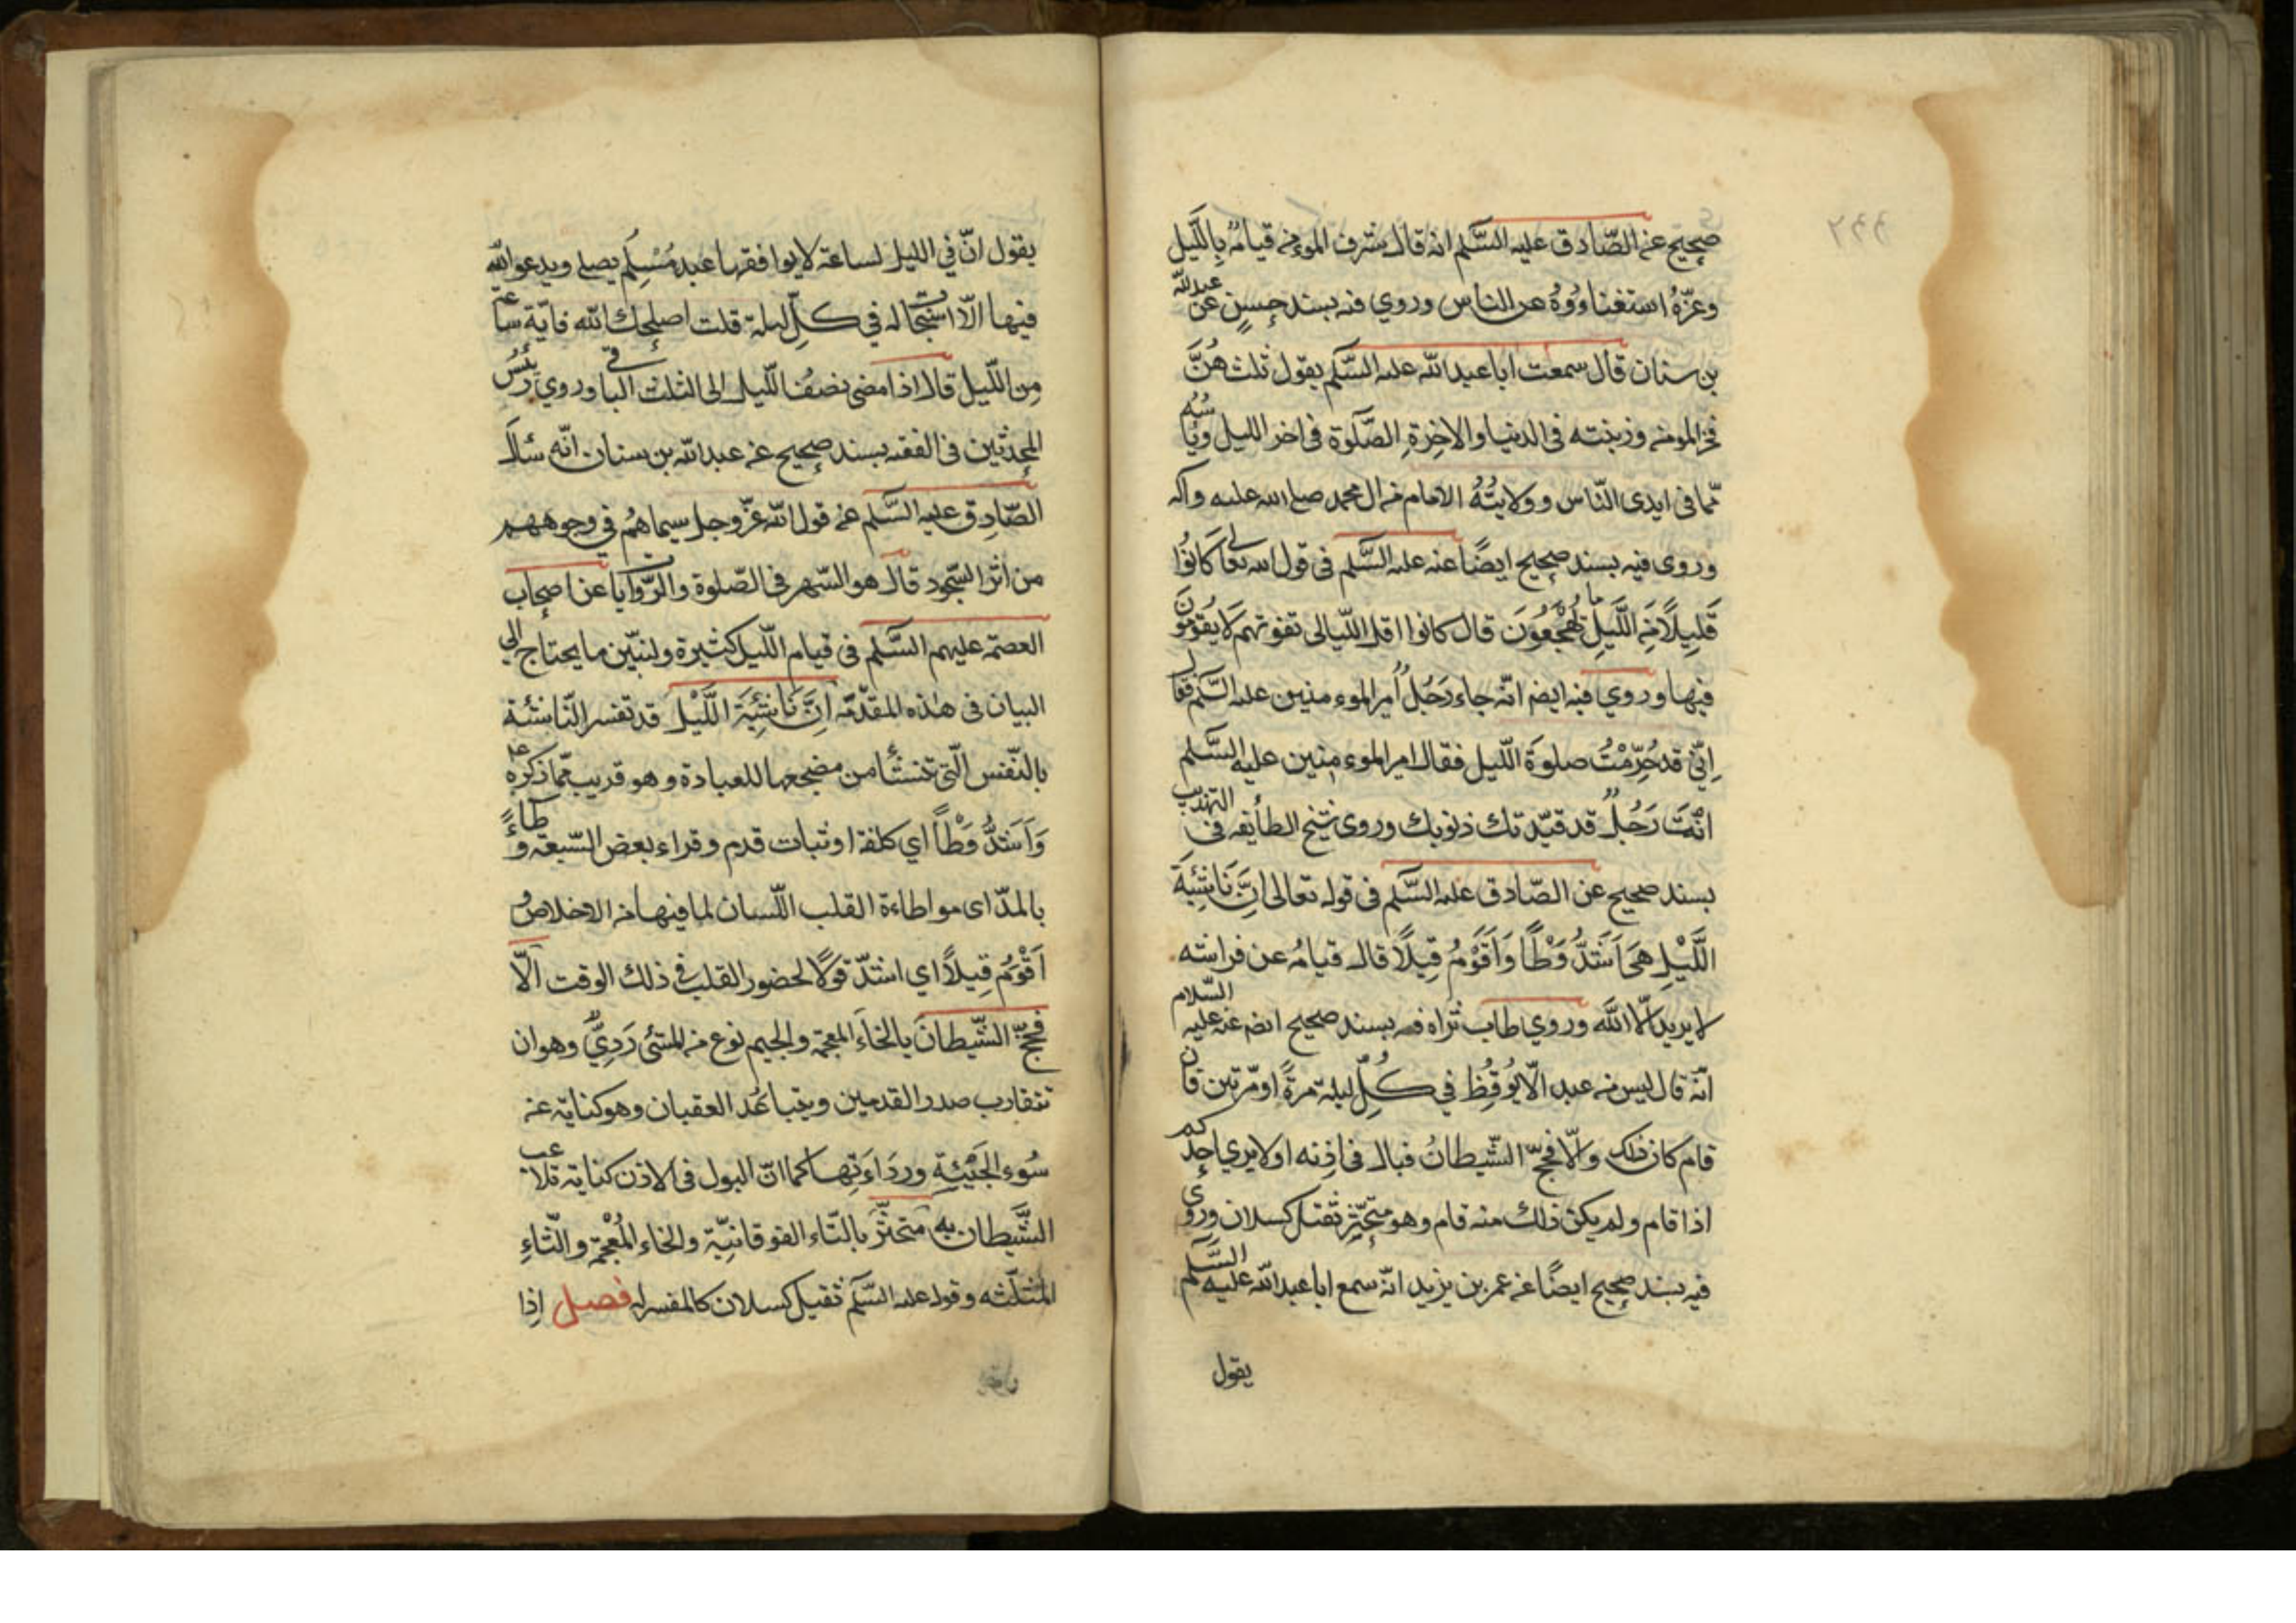 صحيح عن الصّادق عليه السّلم انه قال شرف المومن قيامُه بِاللَّيل
وعزّهُ استغناءُوُهُ عن الناس وروي فيه بسند حسنٍ عن عبدالله
بن سنان قال سمعت ابا عبد الله عليه السّلم يقول ثلث هُنَّ
فخر المومن وزينته فى الدنيا والاخِرةِ الصَّلوة فى اخر الليل ويأسُه
ممّا فى ايدى النّاس وولايتُهُ الامام من ال محمد صلى الله عليه واله
وروى فيه بسند صحيح ايضًا عنه عليه السَّلم فى قول الله تعالى كَانُوا
قَلِيلًا مِنَ اللَّيلِ ما يَهْجَعُونَ قال كانوا اقل اللّيالى تفوتهم لَا يقومُونَ
فيها وروي فيه ايضم انّه جاء رَجُلٌ أمير الموءمنين عليه السَّلم فقال
اِنّي قد حُرِّمْتُ صلوةَ اللّيل فقال امير الموءمنين عليه السَّلم
انْتَ رَجُلٌ قد قيّدتك ذنوبك وروى شيخ الطأيفه فى التهذيب
بسند صحيح عن الصّادق عليه السَّلم فى قوله تعالى اِنَّ نَاشِئَةَ
اللَّيْلِ هِىَ اَشَدُّ وَطْأً وَاَقْوَمُ قِيلًا قال قيامُه عن فراشه
لا يريد الّا اللَّه وروي طاب ثراه فيه بسند صحيح ايضم عنه عليه السّلام
انّه قال ليس من عبد الّا يُوقِظ في كُلِّ ليلة مرةً او مّرتين فان
قام كان ذلك والّا فحجّ الشّيطانُ فبال فى اذِنه اولا يري احدكم
اذا قام ولم يكن ذلك منه قام وهو متحثِّر ثقيل كسلان وروى
فيه بسند صحيح ايضًا عن عمر بن يزيد انّه سمع ابا عبد الله عليه السَّلم
يقول
يقول انّ في الليل لساعة لا يوافقها عبد مُسْلِم يصلى ويدعو الله
فيها الّا استجاب له في كلّ ليلة قلت اصلحك الله فايّة ساعة
مِن اللّيل قال اذا مضى نصفُ اللّيل الى الثلث الباقى وروي رئيسُ
المحدّثين فى الفقيه بسند صحيح عن عبد الله بن سنان انّه سئل
الصّادِق عليه السَّلم عن قول الله عزّ وجل سيماهُم فى وجوههم
من اثر السّجود قال هو السّهر فى الصّلوة والرّوايات عن اصحاب
العصمة عليهم السَّلم فى قيام اللّيل كثيرة ولنبيّن ما يحتاج الي
البيان فى هٰذه المقدّمة اِنَّ نَاشِئَةَ اللَّيْلِ قد تفسر النّاشئة
بالنّفس الّتى تنشأ من مضجعها للعبادة وهو قريب ممّا ذكره ع
وَاَشَدُّ وَطْاً اي كلفة او ثبات قدم وقراء بعض السّبعة وِطاءً
بالمدّ اى مواطاءة القلب اللّسان لما فيها من الاخلاص و
اَقْوَمُ قِيلًا اي اشدّ قولًا لحضور القلب فى ذلك الوقت الّا
فحجّ الشّيطان بالخاء المعجمة والجيم نوع من المشئ رَدِيٌّ وهو ان
تتقارب صدر القدمين ويتباعُد العقبان وهو كناية عن
سُوءِ الجَيْئَةِ وردَاءَتِها كما انّ البول فى الاذن كناية تلاعب
الشَّيطان به متخثّر بالتّاء الفوقانيّة والخاء المُعْجمة والثّاءِ
المثلّثه وقوله عليه السّلم ثقيل كسلان كالمفسر له فصل اِذا